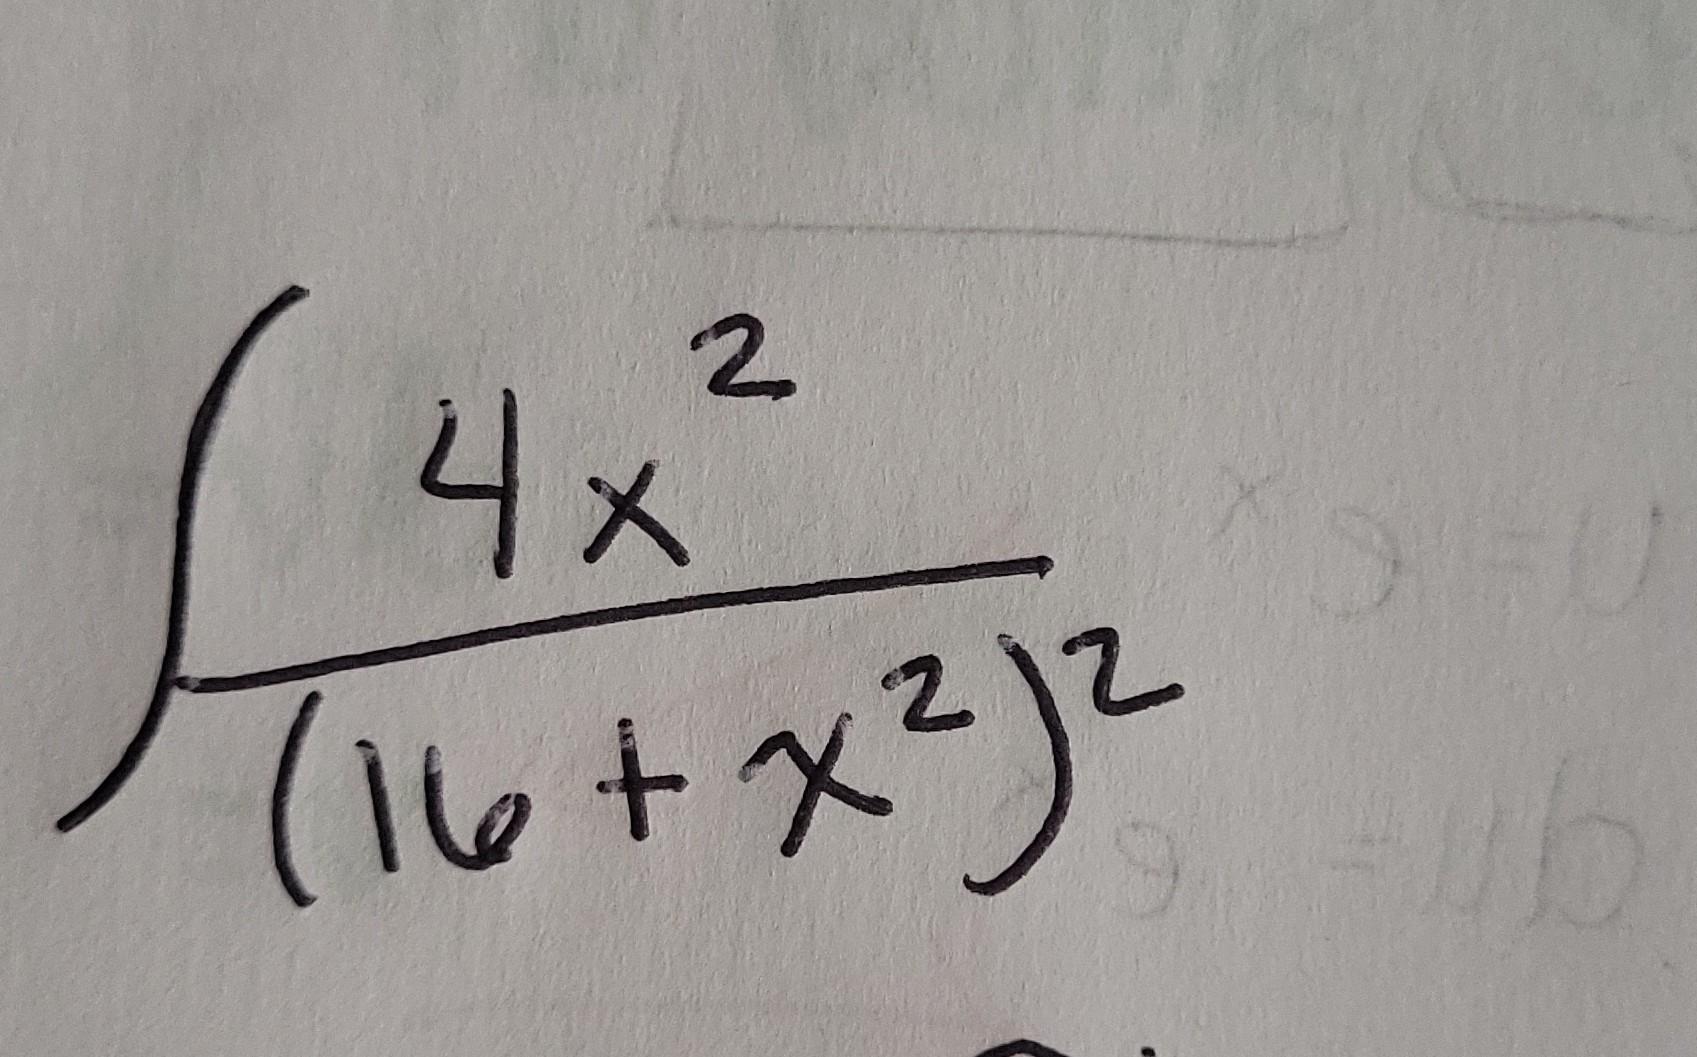 ∫ 4x²
(16 + x²)²